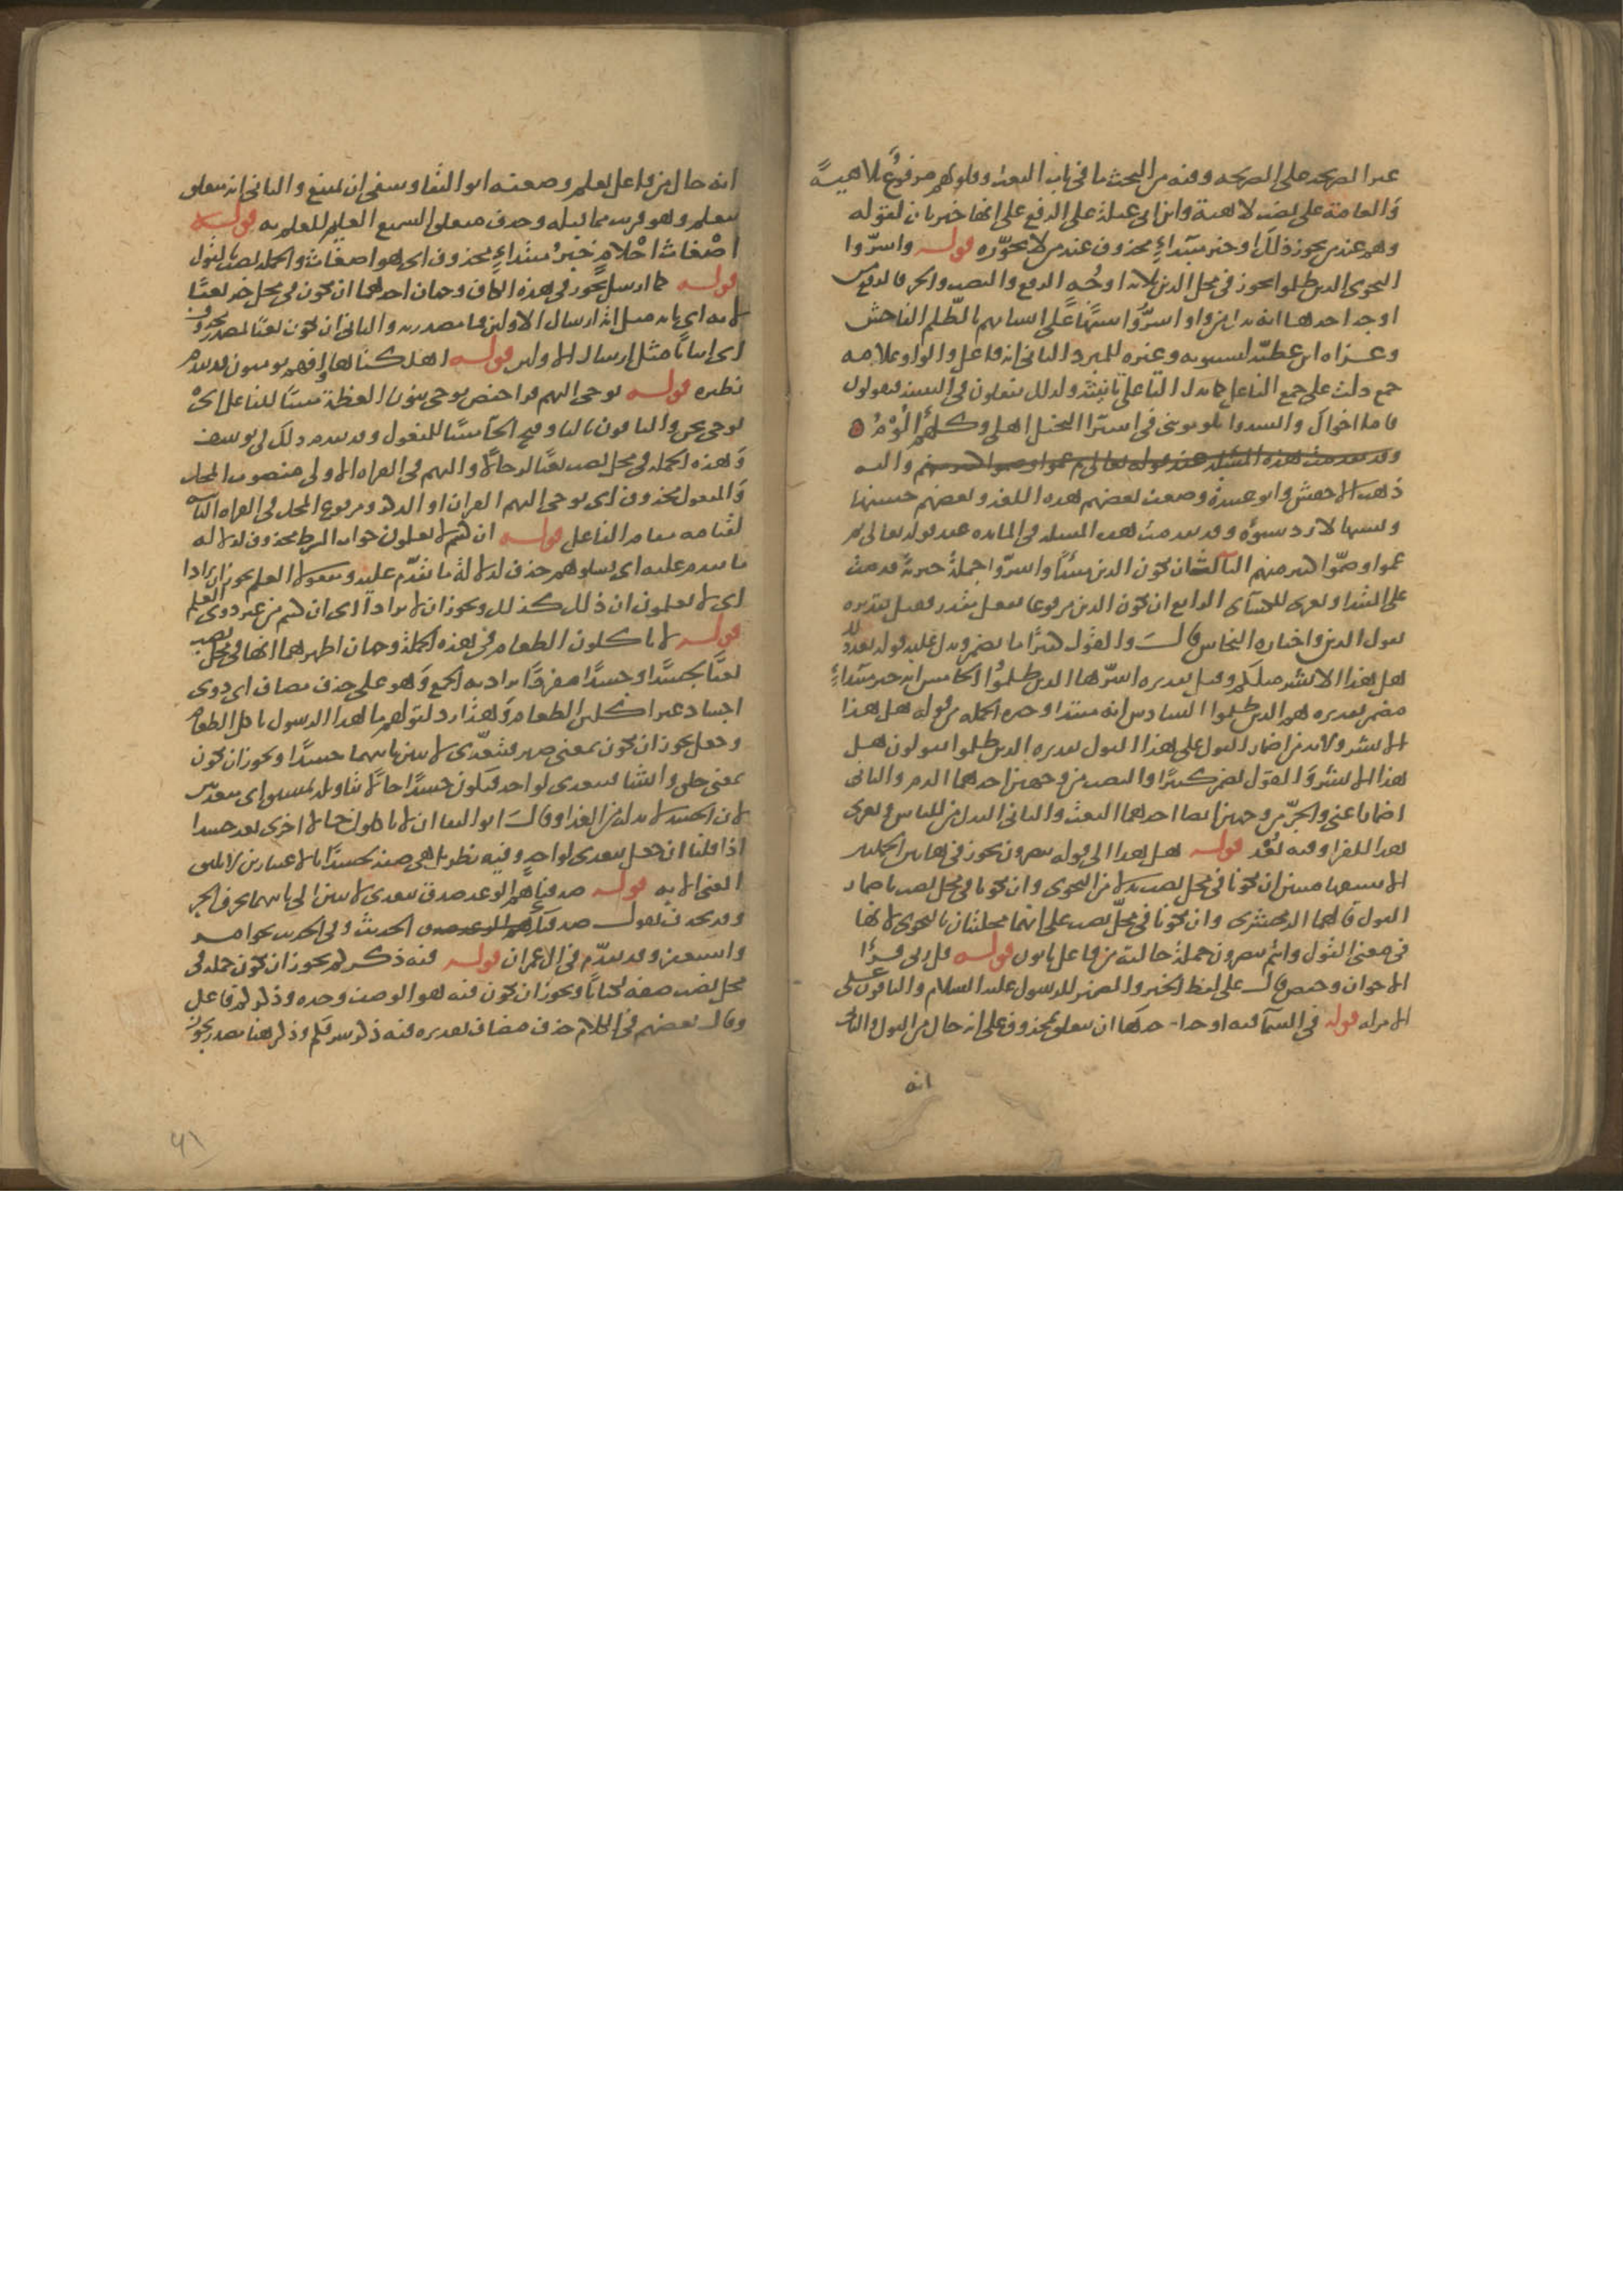 غير الصريحة على الصريحة وفيه من البحث ما في باب النعت وقلوبهم مرفوع بلاهية
والعامة على نصب لاهية وابن ابي عبلة على الرفع على انها خبر ثان لقوله
وهم عند من يجوز ذلك او خبر مبتداء محذوف عند من لا يجوزه قوله واسروا
النجوى الذين ظلموا يجوز في محل الذين ثلاثة اوجه الرفع والنصب والجر فالرفع من
اوجه احدها انه بدل من واو اسروا تنبيها على اتسامهم بالظلم الفاحش
وعزاه ابن عطية لسيبويه وغيره للمبرد الثاني انه فاعل والواو علامة
جمع دلت على جمع الفاعل كما تدل التا على تانيثه ولذلك يفعلون في التثنية فيقولون
قاما اخواك وانشدوا يلومونني في اشترا النخيل اهلي وكلهم الوم
وقد تقدمت هذه المسئلة عند قوله تعالى ثم عموا وصموا كثير منهم واليه
ذهب الاخفش وابو عبيدة وضعف بعضهم هذه اللغة وبعضهم حسنها
ونسبها لازد شنوءة وقد تقدمت هذه المسئلة في المائدة عند قوله تعالى ثم
عموا وصموا كثير منهم الثالث ان يكون الذين مبتدأ واسروا جملة خبرية قدمت
على المبتدا ويعزى للكسائى الرابع ان يكون الذين مرفوعا بفعل مقدر فقيل تقديره
يقول الذين واختاره النحاس قال والقول كثيرا ما يضمر ويدل عليه قوله بعد ذلك
هل هذا الا بشر مثلكم وقيل تقديره اسرها الذين ظلموا الخامس انه خبر مبتداء
مضمر تقديره هم الذين ظلموا السادس انه مبتدا وخبره الجملة من قوله هل هذا
الا بشر ولابد من اضمار القول على هذا القول تقديره الذين ظلموا يقولون هل
هذا الا بشر والقول يضمر كثيرا والنصب من وجهين احدهما الذم والثاني
اضمار اعني والجر من وجهين ايضا احدهما النعت والثاني البدل من للناس ويعزى
هذا للفرا وفيه بعد قوله هل هذا الى قوله تبصرون يجوز في هاتين الجملتين
الاستفهاميتين ان تكونا في محل نصب بدلا من النجوى وان تكونا في محل نصب باضمار
القول قالهما الزمخشري وان تكونا في محل نصب على انهما محكيتان بالنجوى لانها
في معنى القول وانتم تبصرون جملة حالية من فاعل تاتون قوله قل ربي قرأ
الاخوان وحفص قال على لفظ الخبر والضمير للرسول عليه السلام والباقون قل على
الامر له قوله في السما فيه اوجه احدها ان يتعلق بمحذوف على انه حال من القول والثاني
انه
انه حال من فاعل يعلم وضعفه ابو البقا وينبغي ان يمتنع والثاني انه متعلق
بيعلم وهو قريب مما قبله وحذف متعلق السميع العليم للعلم به قوله
اضغاث احلام خبر مبتداء محذوف اى هو اضغاث والجملة نصب بالقول
قوله كما ارسل يجوز في هذه الكاف وجهان احدهما ان تكون في محل جر نعتا
لاية اى باية مثل اية ارسال الاولين فما مصدرية والثاني ان تكون نعتا لمصدر محذوف
اى اتيانا مثل ارسال الاولين قوله اهلكناها افهم يومنون قد تقدم
نظيره قوله نوحي اليهم قرا حفص نوحي بنون العظمة مبنيا للفاعل اى
نوحي نحن والباقون باليا وفتح الحا مبنيا للمفعول وقد تقدم ذلك في يوسف
وهذه الجملة في محل نصب نعتا لرجالا واليهم في القراة الاولى منصوب المحل
والمفعول محذوف اى نوحي اليهم القران او الذكر ومرفوع المحل في القراة الثانية
لقيامه مقام الفاعل قوله ان كنتم لا تعلمون جواب الشرط محذوف لدلالة
ما تقدم عليه اى فاسئلوهم حذف لدلالة ما تقدم عليه ومفعولا العلم يجوز ان يرادا
اى لا تعلمون ان ذلك كذلك ويجوز ان لا يرادا اى ان كنتم من غير ذوي العلم
قوله لا ياكلون الطعام في هذه الجملة وجهان اظهرهما انها في محل نصب
نعتا لجسدا وجسدا مفرد يراد به الجمع وهو على حذف مضاف اى ذوي
اجساد غير اكلين الطعام وهذا رد لقولهم ما لهذا الرسول ياكل الطعام
وجعل يجوز ان تكون بمعنى صير فتتعدى لاثنين ثانيهما جسدا ويجوز ان تكون
بمعنى خلق وانشا فيتعدى لواحد فيكون جسدا حالا بتاويله بمشتق اى متغذين
لان الجسد لا بد له من الغذا وقال ابو البقا ان لا ياكلون حال اخرى بعد جسدا
اذا قلنا ان جعل يتعدى لواحد وفيه نظر بل هي صفة لجسدا بالاعتبارين لا يليق
المعنى الا به قوله صدقناهم الوعد صدق يتعدى لاثنين الى ثانيهما بحرف الجر
وقد يحذف تقول صدقتك الحديث وفي الحديث نحو امر
واستغفر وقد تقدم في ال عمران قوله فيه ذكركم يجوز ان تكون جملة في
محل نصب صفة لكتابا ويجوز ان يكون فيه هو الوصف وحده وذكركم فاعل
وقال بعضهم في الكلام حذف مضاف تقديره فيه ذكر شرفكم وذكر هنا مصدر يجوز